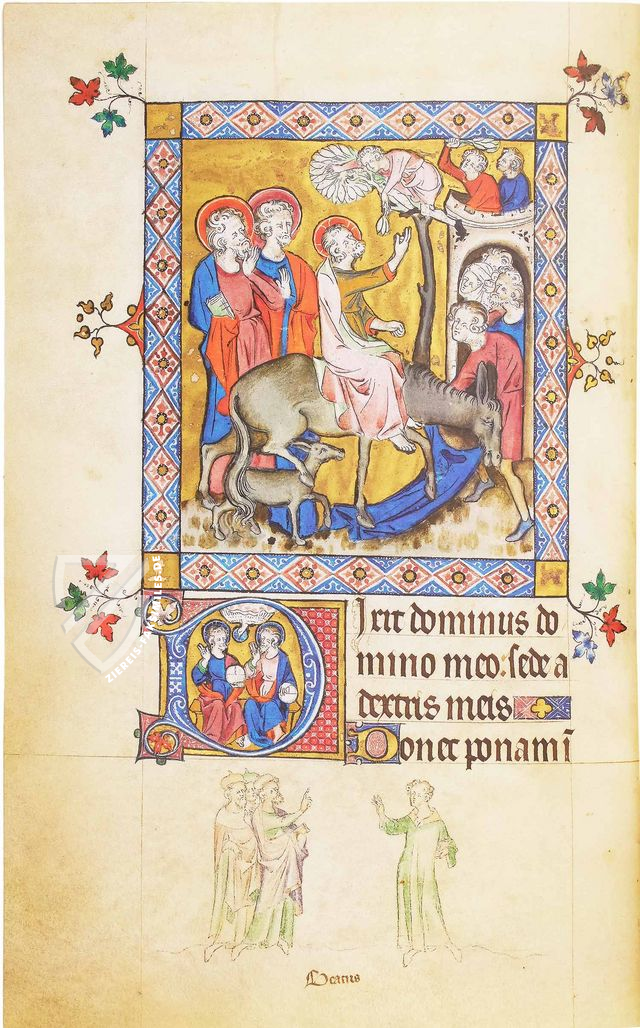 Dixit dominus do
mino meo: sede a
dextris meis
Donec ponam i
Beatus
ZIEREIS